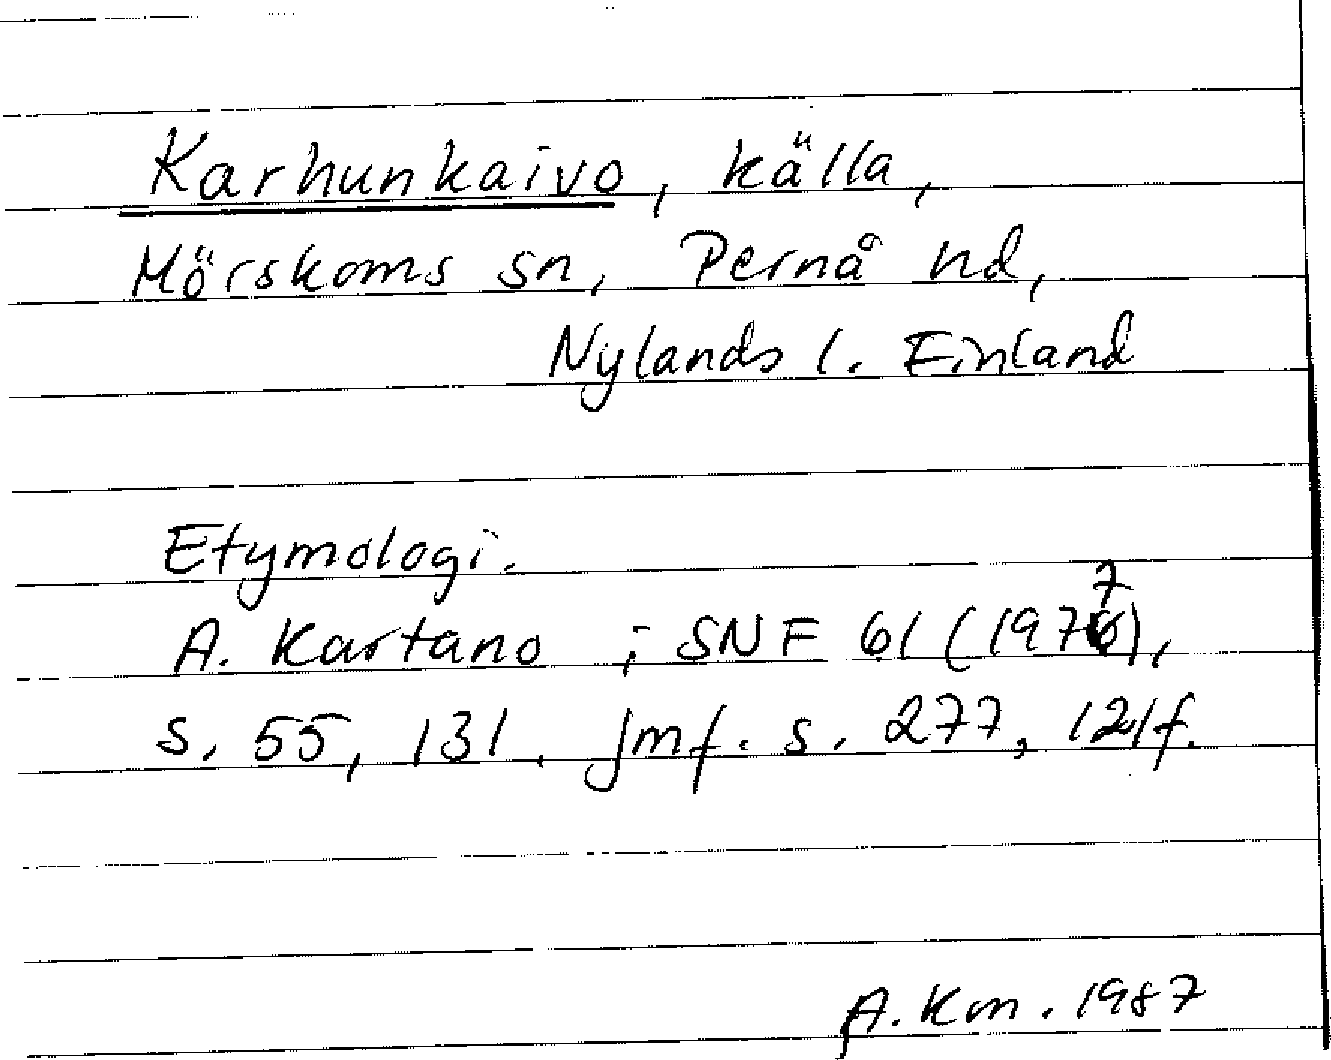 Karhunkaivo, källa,
Mörskoms sn, Pernå nd,
Nylands l. Finland
Etymologi.
A. Kartano i SNF 61 (1977),
s. 55, 131. Jmf. s. 277, 121f.
A. Km. 1987